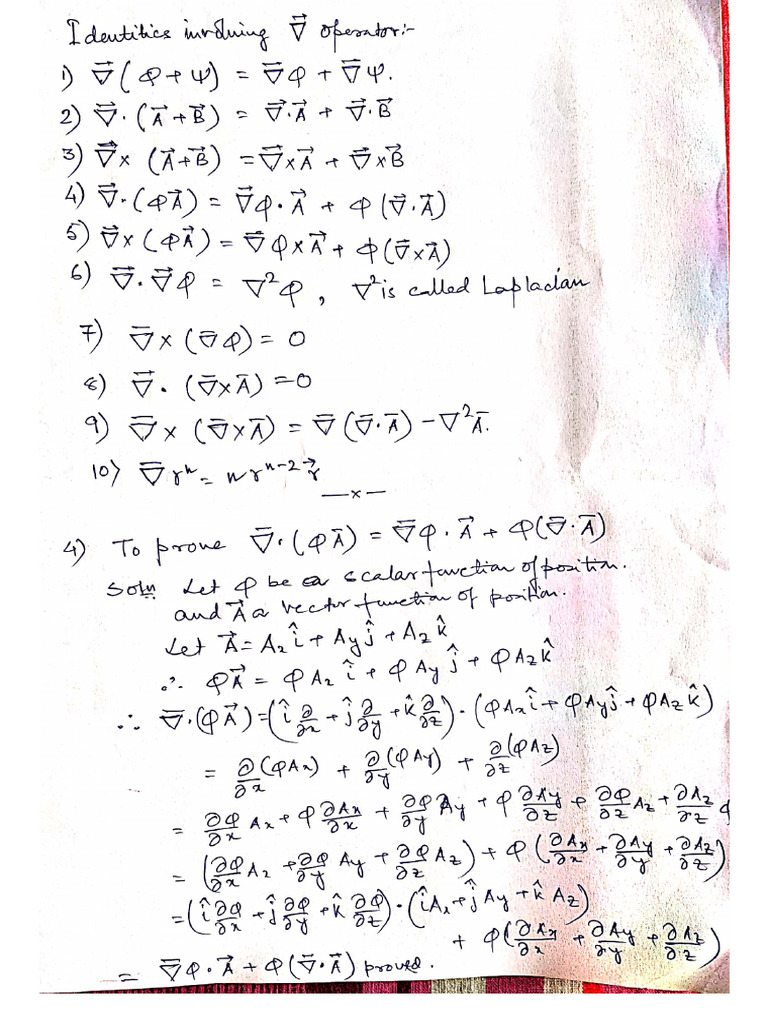 Identities involving ∇⃗ operator:-
1) ∇⃗(φ+ψ) = ∇⃗φ + ∇⃗ψ.
2) ∇⃗·(A⃗+B⃗) = ∇⃗·A⃗ + ∇⃗·B⃗
3) ∇⃗× (A⃗+B⃗) = ∇⃗×A⃗ + ∇⃗×B⃗
4) ∇⃗·(φA⃗) = ∇⃗φ·A⃗ + φ(∇⃗·A⃗)
5) ∇⃗×(φA⃗) = ∇⃗φ×A⃗ + φ(∇⃗×A⃗)
6) ∇⃗·∇⃗φ = ∇²φ , ∇² is called Laplacian
7) ∇̄×(∇̄φ) = 0
8) ∇⃗·(∇̄×Ā) = 0
9) ∇̄× (∇̄×Ā) = ∇̄(∇̄·Ā) - ∇²Ā.
10) ∇̄rⁿ = n rⁿ⁻² r⃗
—x—
4) To prove ∇̄·(φĀ) = ∇̄φ·A⃗ + φ(∇̄·Ā)
Soln Let φ be a scalar function of position.
and A⃗ a vector function of position.
Let A⃗ = A₂î + Ayĵ + A₂k̂
∴ φA⃗ = φA₂î + φAyĵ + φAzk̂
∴ ∇̄·(φA⃗) = (î ∂/∂x + ĵ ∂/∂y + k̂ ∂/∂z)·(φAxî + φAyĵ + φAzk̂)
= ∂/∂x(φAx) + ∂/∂y(φAy) + ∂/∂z(φAz)
= ∂φ/∂x Ax + φ ∂Ax/∂x + ∂φ/∂y Ay + φ ∂Ay/∂z + ∂φ/∂z Az + ∂Az/∂z φ
= (∂φ/∂x A₂ + ∂φ/∂y Ay + ∂φ/∂z Az) + φ(∂Ax/∂x + ∂Ay/∂y + ∂Az/∂z)
= (î ∂φ/∂x + ĵ ∂φ/∂y + k̂ ∂φ/∂z)·(îAx + ĵAy + k̂Az)
+ φ(∂Ax/∂x + ∂Ay/∂y + ∂Az/∂z)
= ∇̄φ·A⃗ + φ(∇̄·A⃗) proved.